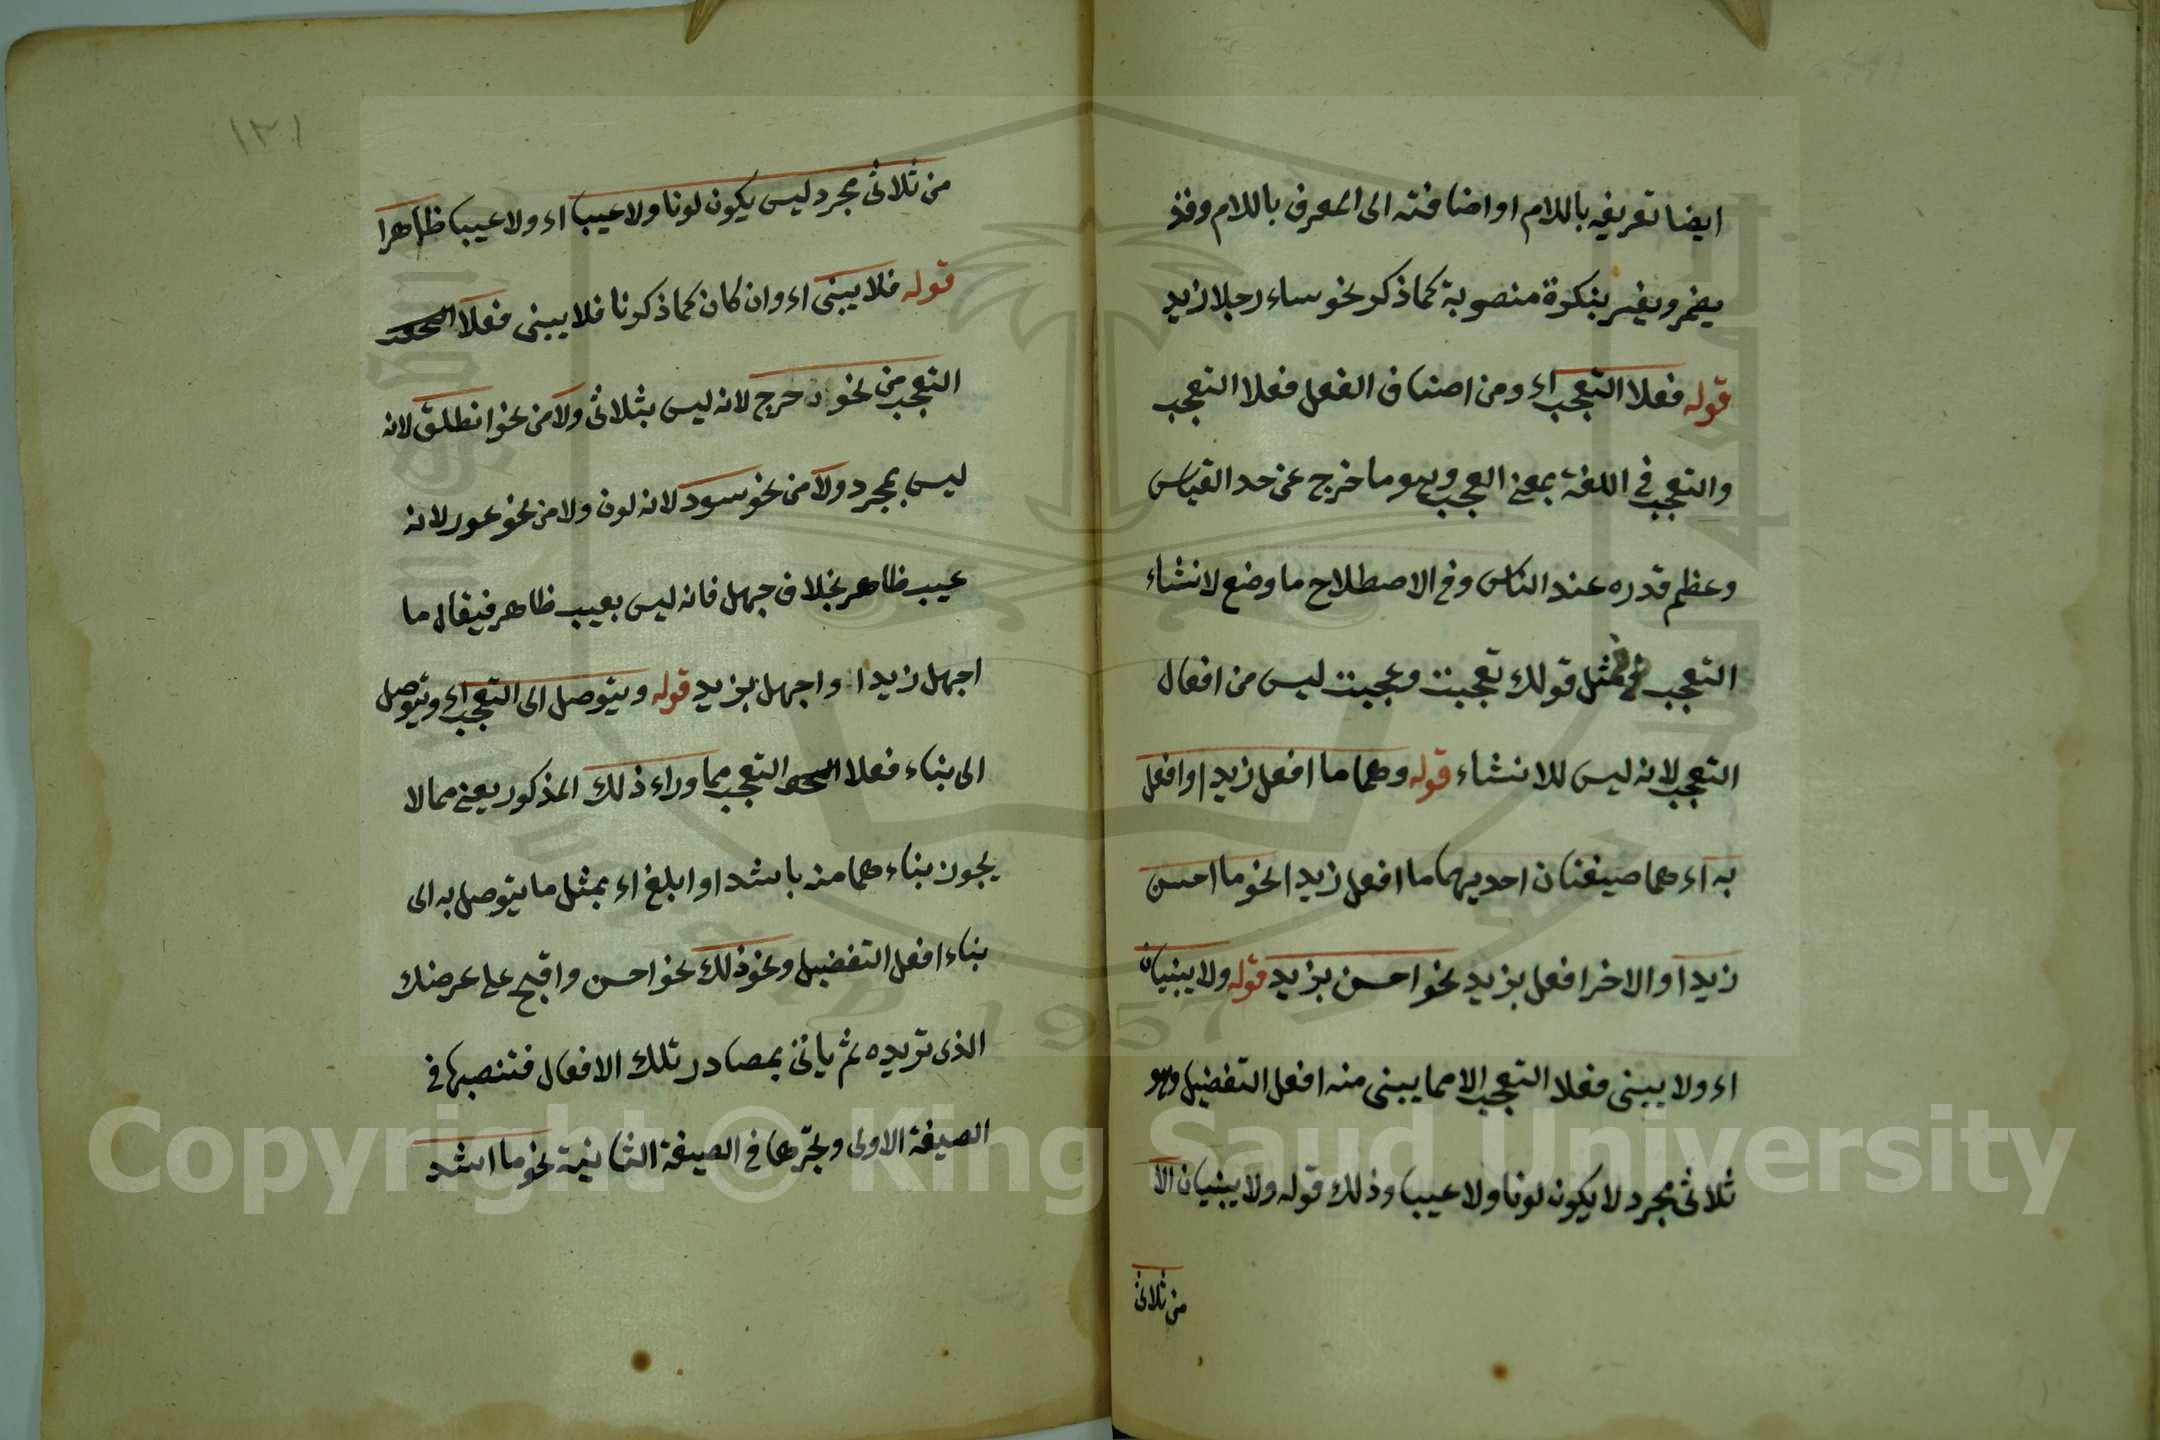 ايضا تعريفه باللام او اضافته الى المعرف باللام وقد
يضمر ويفسر بنكرة منصوبة كما ذكر نحو ساء رجلا زيد
قوله فعلا التعجب اء ومن اصناف الفعل فعلا التعجب
والتعجب في اللغة بمعنى العجب وهو ما خرج عن حد القياس
وعظم قدره عند الناس وفي الاصطلاح ما وضع لانشاء
التعجب فمثل قولك تعجبت وعجبت ليس من افعال
التعجب لانه ليس للانشاء قوله وهما ما افعل زيدا وافعل
به اء هما صيغتان احديهما ما افعل زيدا نحو ما احسن
زيدا والاخر افعل بزيد نحو احسن بزيد قوله ولا يبنيان
اء ولا يبنى فعلا التعجب الا مما يبنى منه افعل التفضيل وهو
ثلاثى مجرد لا يكون لونا ولا عيبا وذلك قوله ولا يبنيان الا
من ثلاثى
١٢١
من ثلاثى مجرد ليس يكون لونا ولا عيبا اء ولا عيبا ظاهرا
قوله فلا يبنى اء وان كان كما ذكرنا فلا يبنى فعلا
التعجب من نحو دحرج لانه ليس بثلاثى ولا من نحو انطلق لانه
ليس بمجرد ولا من نحو سود لانه لون ولا من نحو عور لانه
عيب ظاهر بخلاف جهل فانه ليس بعيب ظاهر فيقال ما
اجهل زيدا واجهل بزيد قوله ويتوصل الى التعجب اء ويتوصل
الى بناء فعلا التعجب مما وراء ذلك المذكور يعنى مما لا
يجوز بناءهما منه باشد او ابلغ اء بمثل ما يتوصل به الى
بناء افعل التفضيل ونحو ذلك نحو احسن واقبح على غرضك
الذى تريده ثم ياتى بمصادر تلك الافعال فتنصبها في
الصيغة الاولى وتجرها في الصيغة الثانية نحو ما اشد
Copyright © King Saud University
1957